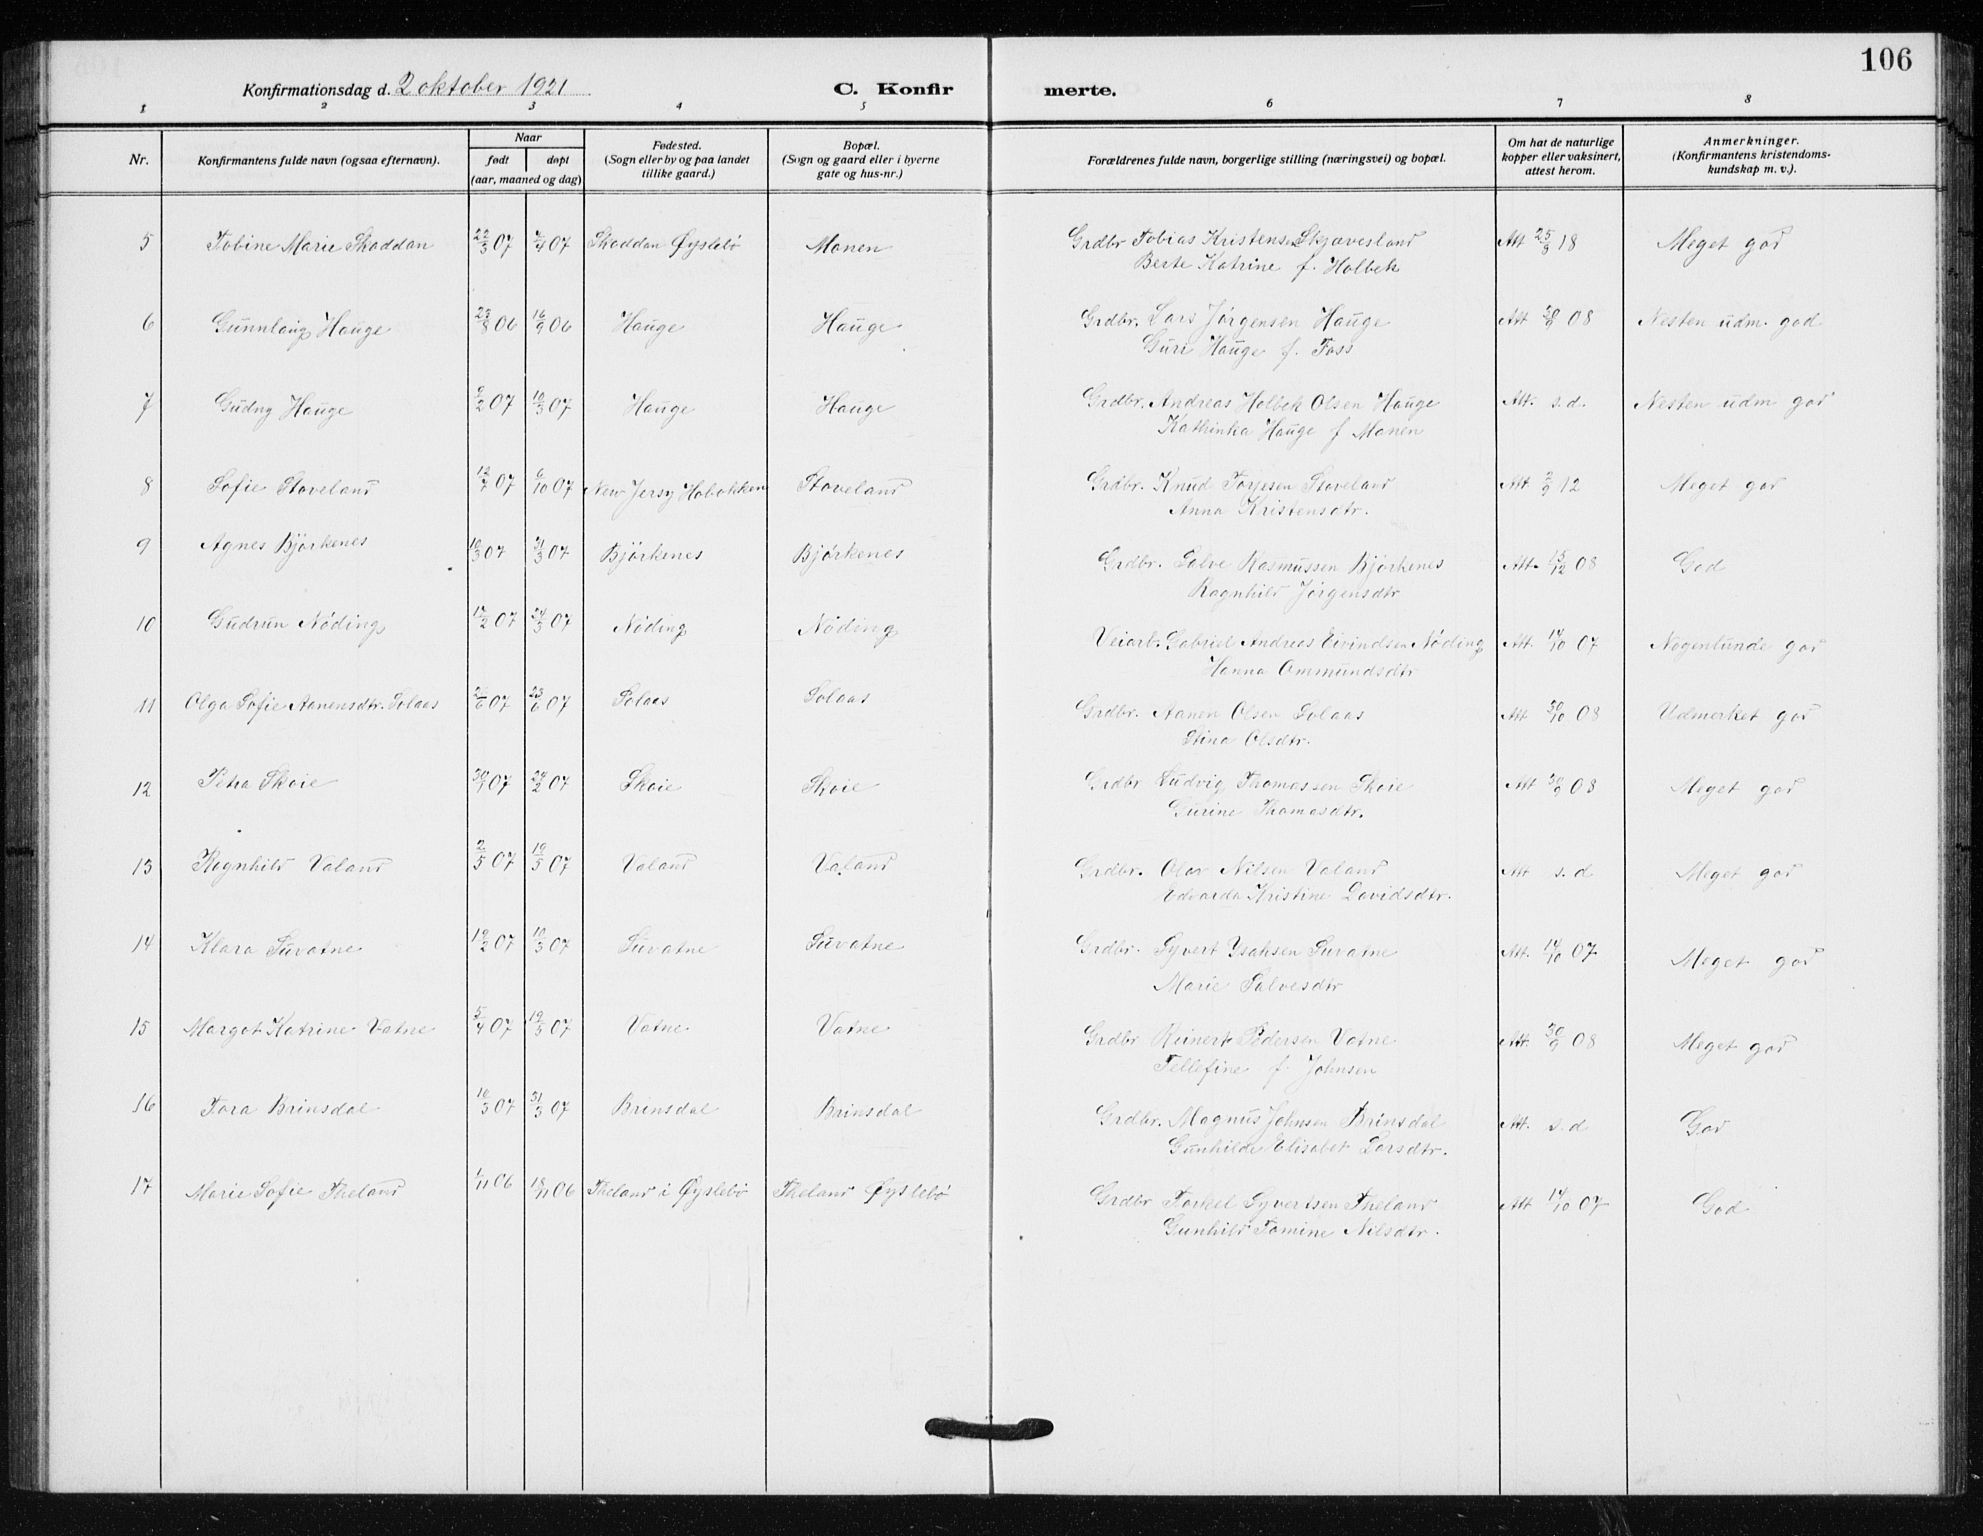 106
Konfirmationsdag d. 2 oktober 1921
C. Konfir merte.
1 2 3 4 5 6 7 8
Nr. Konfirmantens fulde navn (ogsaa efternavn). Naar født døpt (aar, maaned og dag) Fødested. (Sogn eller by og paa landet tillike gaard.) Bopæl. (Sogn og gaard eller i byerne gate og hus-nr.) Forældrenes fulde navn, borgerlige stilling (næringsvei) og bopæl. Om hat de naturlige kopper eller vaksinert, attest herom. Anmerkninger. (Konfirmantens kristendoms-kundskap m. v.).
5 Tobine Marie Skaddan 22/3 07 4/07 Skaddan Øyslebö Monen Grdbr Tobias Kristensen Skjævesland Att 25/3 18 Meget god
Berte Katrine f. Holbek
6 Gunnlaug Hauge 23/8 06 16/9 06 Hauge Hauge Grdbr. Lars Jørgensen Hauge Att 30/9 08 Nesten udm. god
Guri Hauge f. Foss
7 Gudny Hauge 2 07 10/3 07 Hauge Hauge Grdbr. Andreas Holbek Olsen Hauge Att. s.d. Nesten udm god
Kathinka Hauge f Monen
8 Sofie Stoveland 12/7 07 6/10 07 New Jersy Hobokken Stoveland Grdbr. Knud Torjesen Stoveland Att 2/9 12 Meget god
Anna Kristensdtr.
9 Agnes Bjørkenes 10/3 07 31/3 07 Bjørkenes Bjørkenes Grdbr. Salve Rasmussen Bjørkenes Att. 15/12 08 God
Ragnhild Jørgensdtr
10 Gudrun Nöding 17/2 07 24/3 07 Nöding Nöding Veiarb. Gabriel Andreas Eivindsen Nöding Att. 14/10 07 Nogenlunde god
Hanna Ommundsdtr
11 Olga Sofie Aanensdtr. Solaas 2/6 07 23/6 07 Solaas Solaas Grdbr. Aanen Olsen Solaas Att 30/10 08 Udmerket god
Stina Olsdtr.
12 Petra Skoie 30/1 07 24/2 07 Skoie Skoie Grdbr Ludvig Thomassen Skoie Att 30/9 08 Meget god
Gurine Thomasdtr.
13 Ragnhild Valand 2/5 07 19/5 07 Valand Valand Grdbr. Olav Nilsen Valand Att s.d Meget god
Edvarda Kristine Davidsdtr.
14 Klara Suvatne 19/2 07 10/3 07 Suvatne Suvatne Grdbr. Syvert Ysaksen Suvatne Att. 14/10 07 Meget god
Marie Salvesdtr
15 Margot Katrine Vatne 5/4 07 19/5 07 Vatne Vatne Grdbr Reinert Pedersen Vatne Att. 30/9 08 Meget god
Tellefine f. Johnsen
16 Tora Brinsdal 10/3 07 31/3 07 Brinsdal Brinsdal Grdbr. Magnus Johnsen Brinsdal Att. s.d God
Gunhilde Elisabet Larsdtr.
17 Marie Sofie Theland 1/11 06 18/11 06 Theland i Øyslebö Theland Øyslebö Grdbr Torkel Syvertsen Theland Att 14/10 07 God
Gunhild Tomine Nilsdtr.